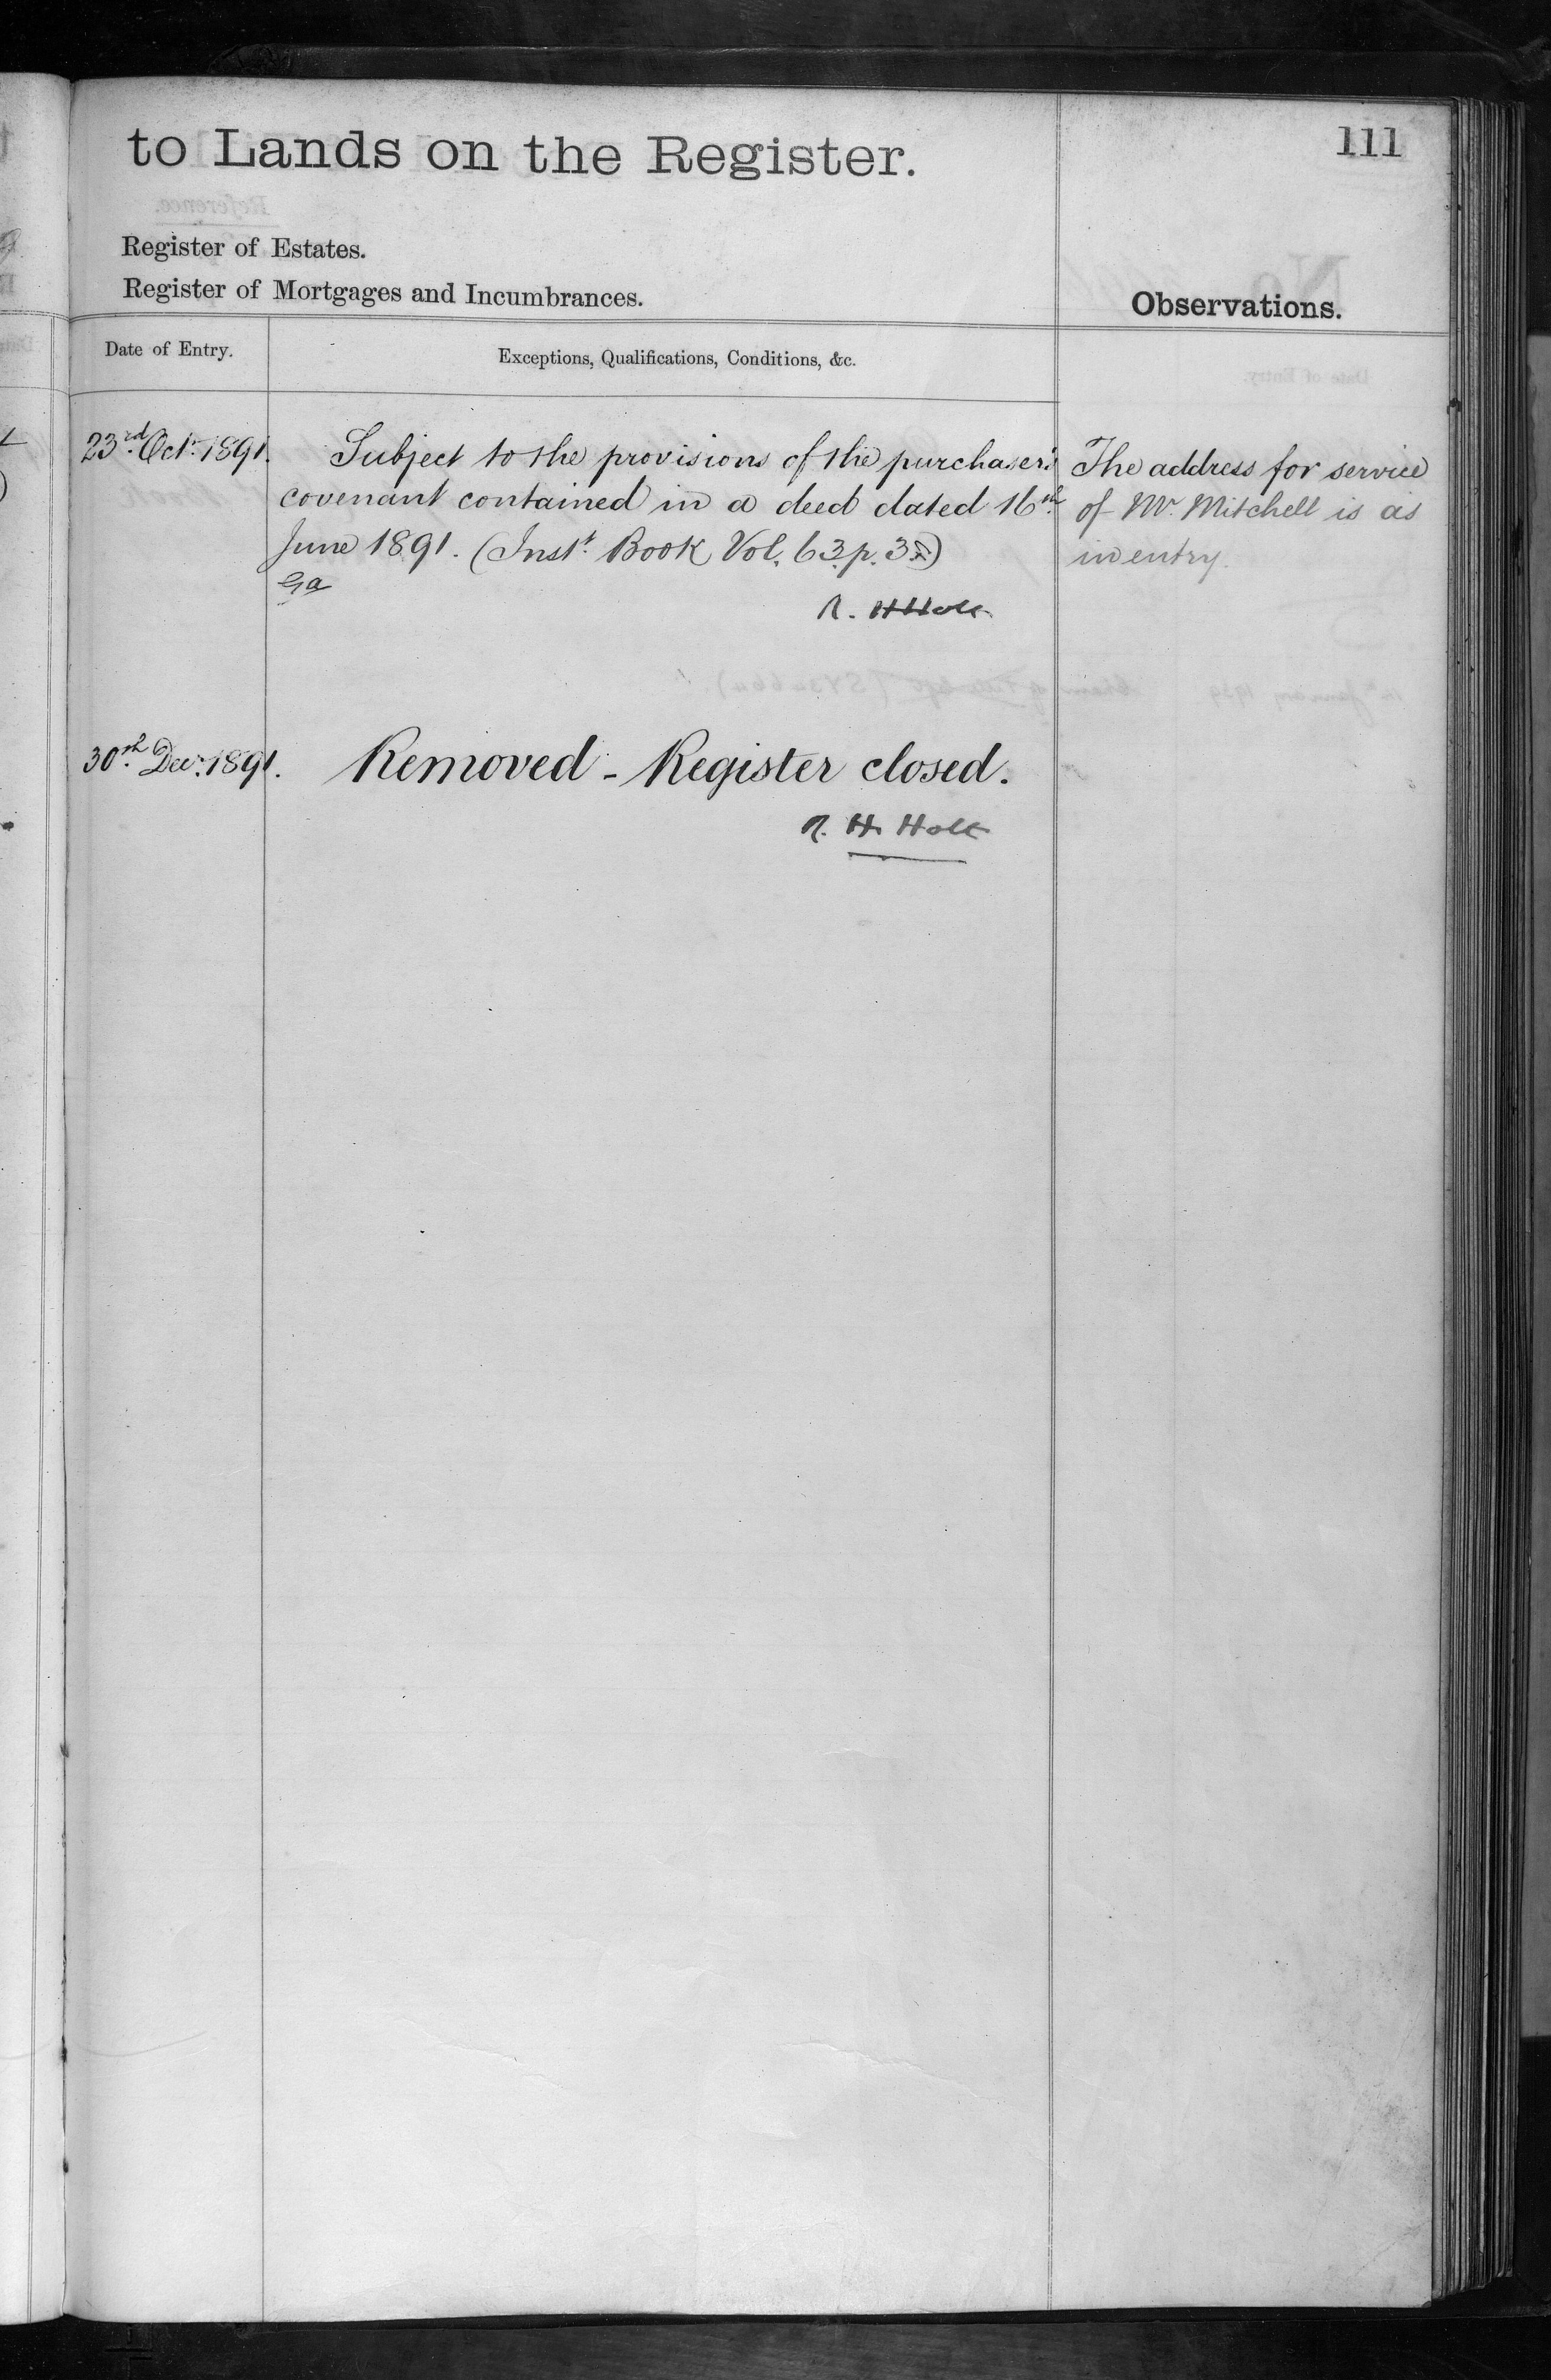 to Lands on the Register.
111
Register of Estates.
Register of Mortgages and Incumbrances.
Observations.
Date of Entry.
Exceptions, Qualifications, Conditions, &c.
23rd Octr. 1891.
Subject to the provisions of the purchaser's
covenant contained in a deed dated 16th
June 1891. (Instt. Book Vol. 63. p. 3
R. H Holt
The address for service
of Mr. Mitchell is as
in entry.
30th Decr. 1891.
Removed - Register closed.
R. H. Holt